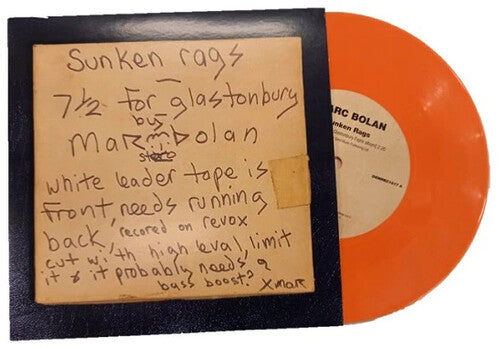 Sunken rags
7½ for glastonbury
by
Marc Bolan
stereo
white leader tape is
front, needs running
back, recored on revox
cut with high leval limit
it & it probably needs a
bass boost? X marc
MARC BOLAN
Sunken Rags